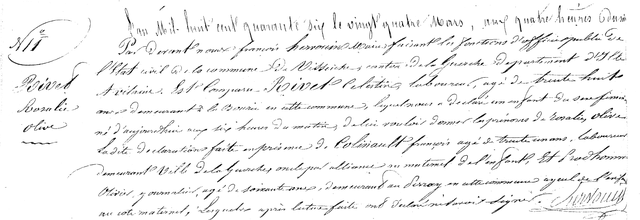 N° 11
Rivet
Rosalie
Olive
L'an Mil huit cent quarante six le vingt quatre Mars, aux quatre heures du soir
Par devant nous françois maire faisant les fonctions d'officier public de
l'Etat civil de la commune de canton de la Guerche département d'Ille
et vilaine, Est comparu Rivet Celestin laboureur, agé de trente huit
ans demeurant à la en cette commune, lequel nous a déclaré un enfant du sexe féminin
né d'aujourd'hui aux six heures du matin, de lui voulu donner les prénoms de rosalie, olive
La dite déclaration faite en présence de Colinault françois agé de trente un ans, laboureur
demeurant Ville de la Guerche, oncle par alliance au maternel de l'enfant, Et Prodhomme
Olivier, journalier, agé de soixante ans, demeurant au en cette commune ayeul de l'enfant
au coté maternel, Lesquels après lecture faite ont déclaré ne savoir signer.